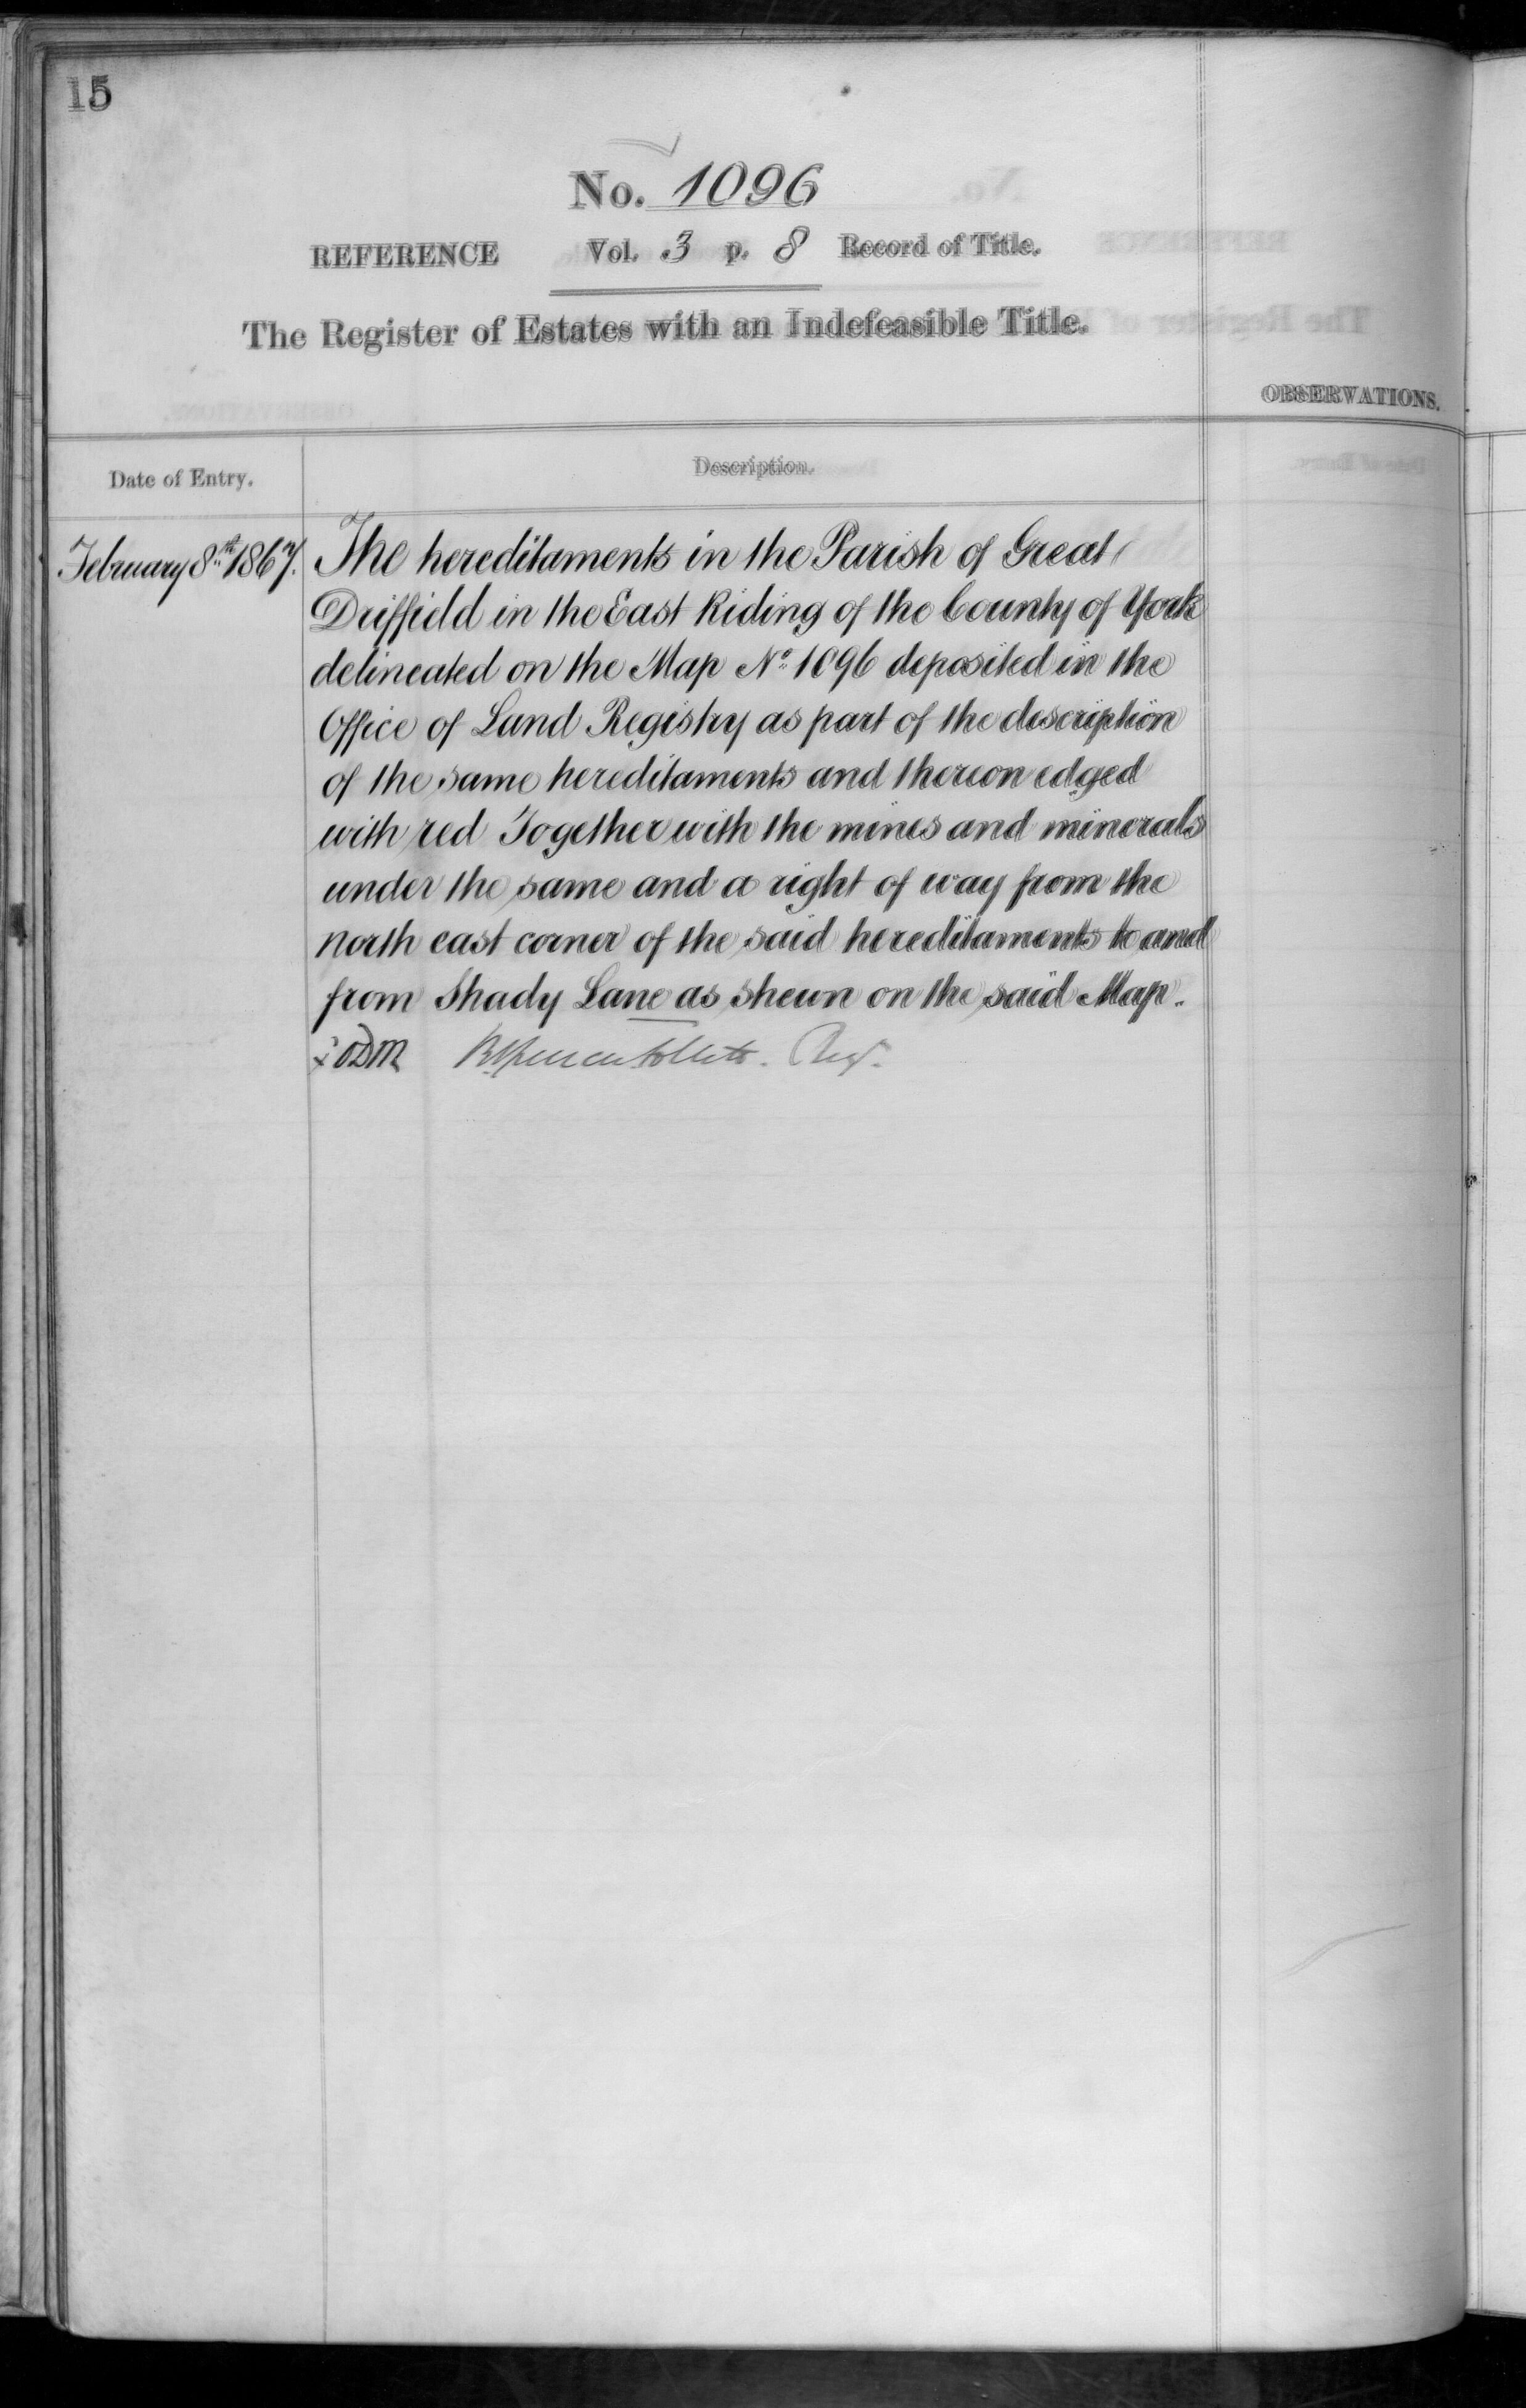 15
No. 1096
REFERENCE Vol. 3 p. 8 Record of Title.
The Register of Estates with an Indefeasible Title.
OBSERVATIONS.
Date of Entry.
Description.
February 8th 1867.
The hereditaments in the Parish of Great
Driffield in the East Riding of the County of York
delineated on the Map No. 1096 deposited in the
Office of Land Registry as part of the description
of the same hereditaments and thereon edged
with red Together with the mines and minerals
under the same and a right of way from the
north east corner of the said hereditaments to and
from Shady Lane as shewn on the said Map.
Reg.